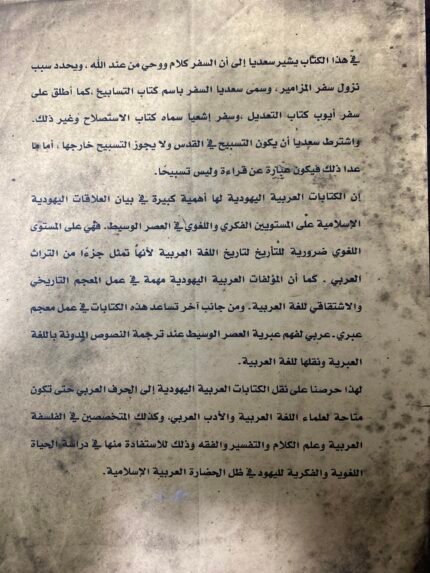 في هذا الكتاب يشير سعديا إلى أن السفر كلام ووحي من عند الله ، ويحدد سبب
نزول سفر المزامير، وسمى سعديا السفر باسم كتاب التسابيح ،كما أطلق على
سفر أيوب كتاب التعديل ،وسفر إشعيا سماه كتاب الاستصلاح وغير ذلك.
واشترط سعديا أن يكون التسبيح في القدس ولا يجوز التسبيح خارجها ، أما ما
عدا ذلك فيكون عبارة عن قراءة وليس تسبيحًا.
إن الكتابات العربية اليهودية لها أهمية كبيرة في بيان العلاقات اليهودية
الإسلامية على المستويين الفكري واللغوي في العصر الوسيط. فهي على المستوى
اللغوي ضرورية للتأريخ لتاريخ اللغة العربية لأنها تمثل جزءًا من التراث
العربي . كما أن المؤلفات العربية اليهودية مهمة في عمل المعجم التاريخي
والاشتقاقي للغة العربية. ومن جانب آخر تساعد هذه الكتابات في عمل معجم
عبري-عربي لفهم عبرية العصر الوسيط عند ترجمة النصوص المدونة باللغة
العبرية ونقلها للغة العربية .
لهذا حرصنا على نقل الكتابات العربية اليهودية إلى الحرف العربي حتى تكون
متاحة لعلماء اللغة العربية والأدب العربي، وكذلك المتخصصين في الفلسفة
العربية وعلم الكلام والتفسير والفقه وذلك للاستفادة منها في دراسة الحياة
اللغوية والفكرية لليهود في ظل الحضارة العربية الإسلامية.